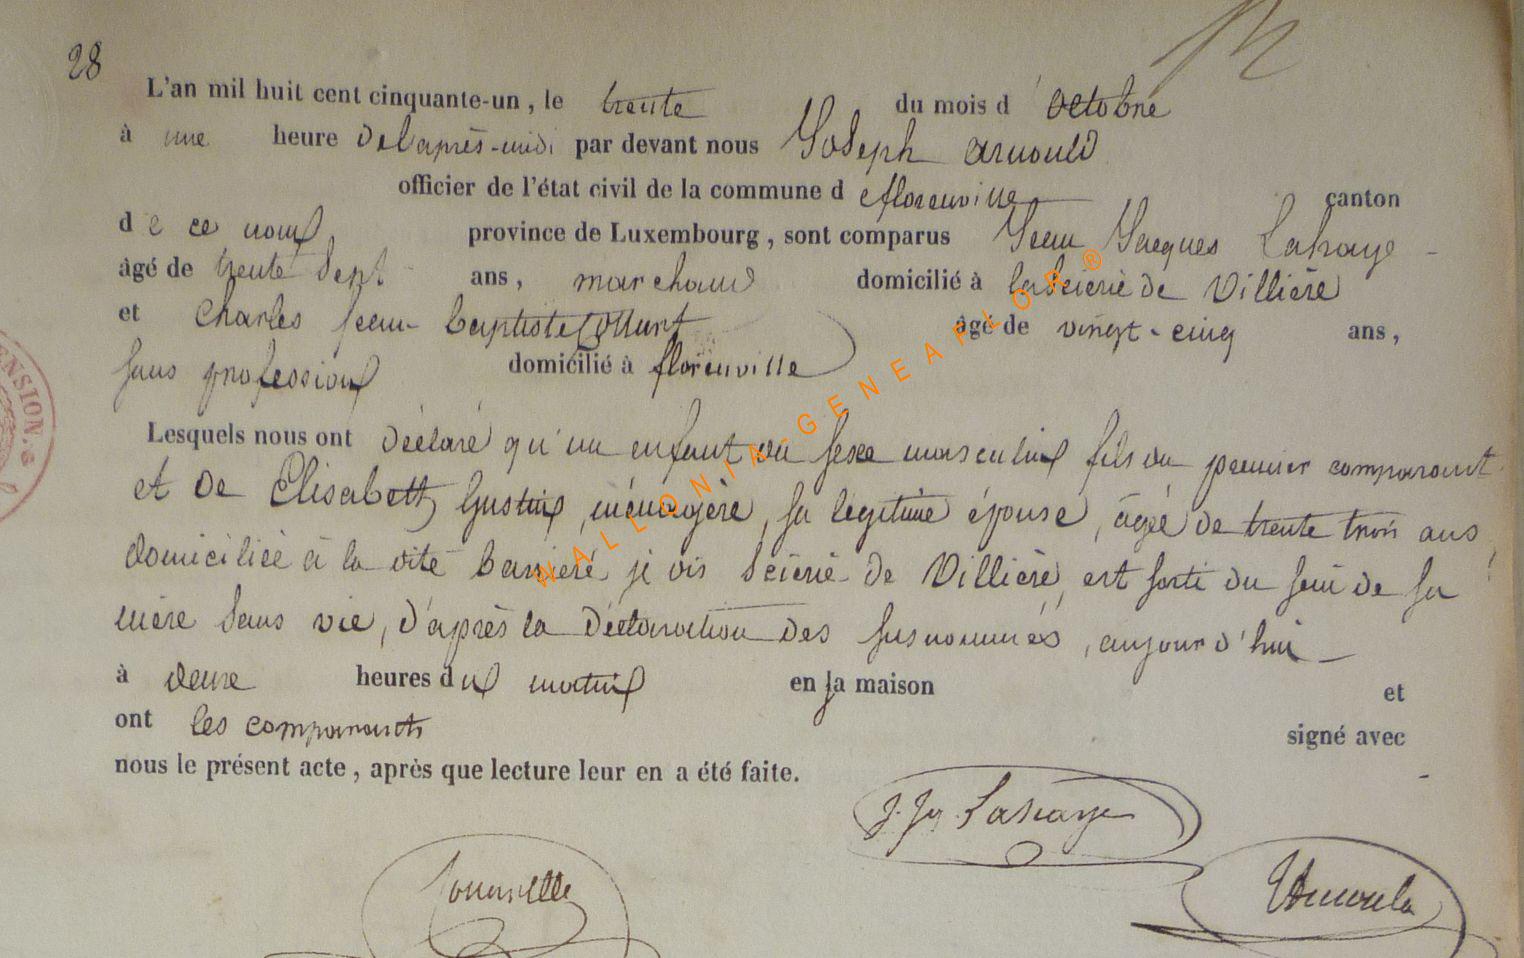 28
L'an mil huit cent cinquante-un, le trente du mois d'octobre
à une heure de l'après-midi par devant nous Joseph Arnould
officier de l'état civil de la commune de florenville canton
de ce nom province de Luxembourg, sont comparus Jean Jacques Lahaye
âgé de trente sept ans, marchand domicilié à la scierie de Villière
et Charles Jean-baptiste âgé de vingt-cinq ans,
sans profession domicilié à florenville
Lesquels nous ont déclaré qu'un enfant du sexe masculin fils du premier comparant
et de Elisabeth Gustin, ménagère, sa légitime épouse, âgée de trente trois ans,
domiciliée à la dite scierie de Villière, est sorti du sein de sa
mère sans vie, d'après la déclaration des susnommés, aujourd'hui
à deux heures du matin en sa maison et
ont les comparants signé avec
nous le présent acte, après que lecture leur en a été faite.
J. Jq Lahaye
Arnould
WALLONIA-GENEAFLOR®
ENSION.